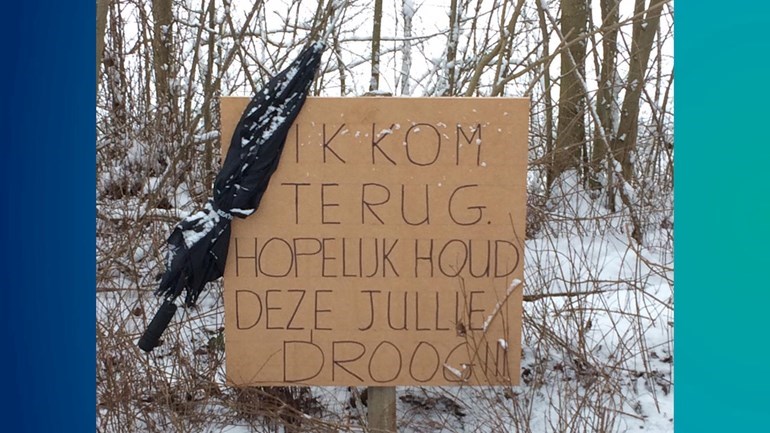 IK KOM
TERUG.
HOPELIJK HOUD
DEZE JULLIE
DROOG!!!